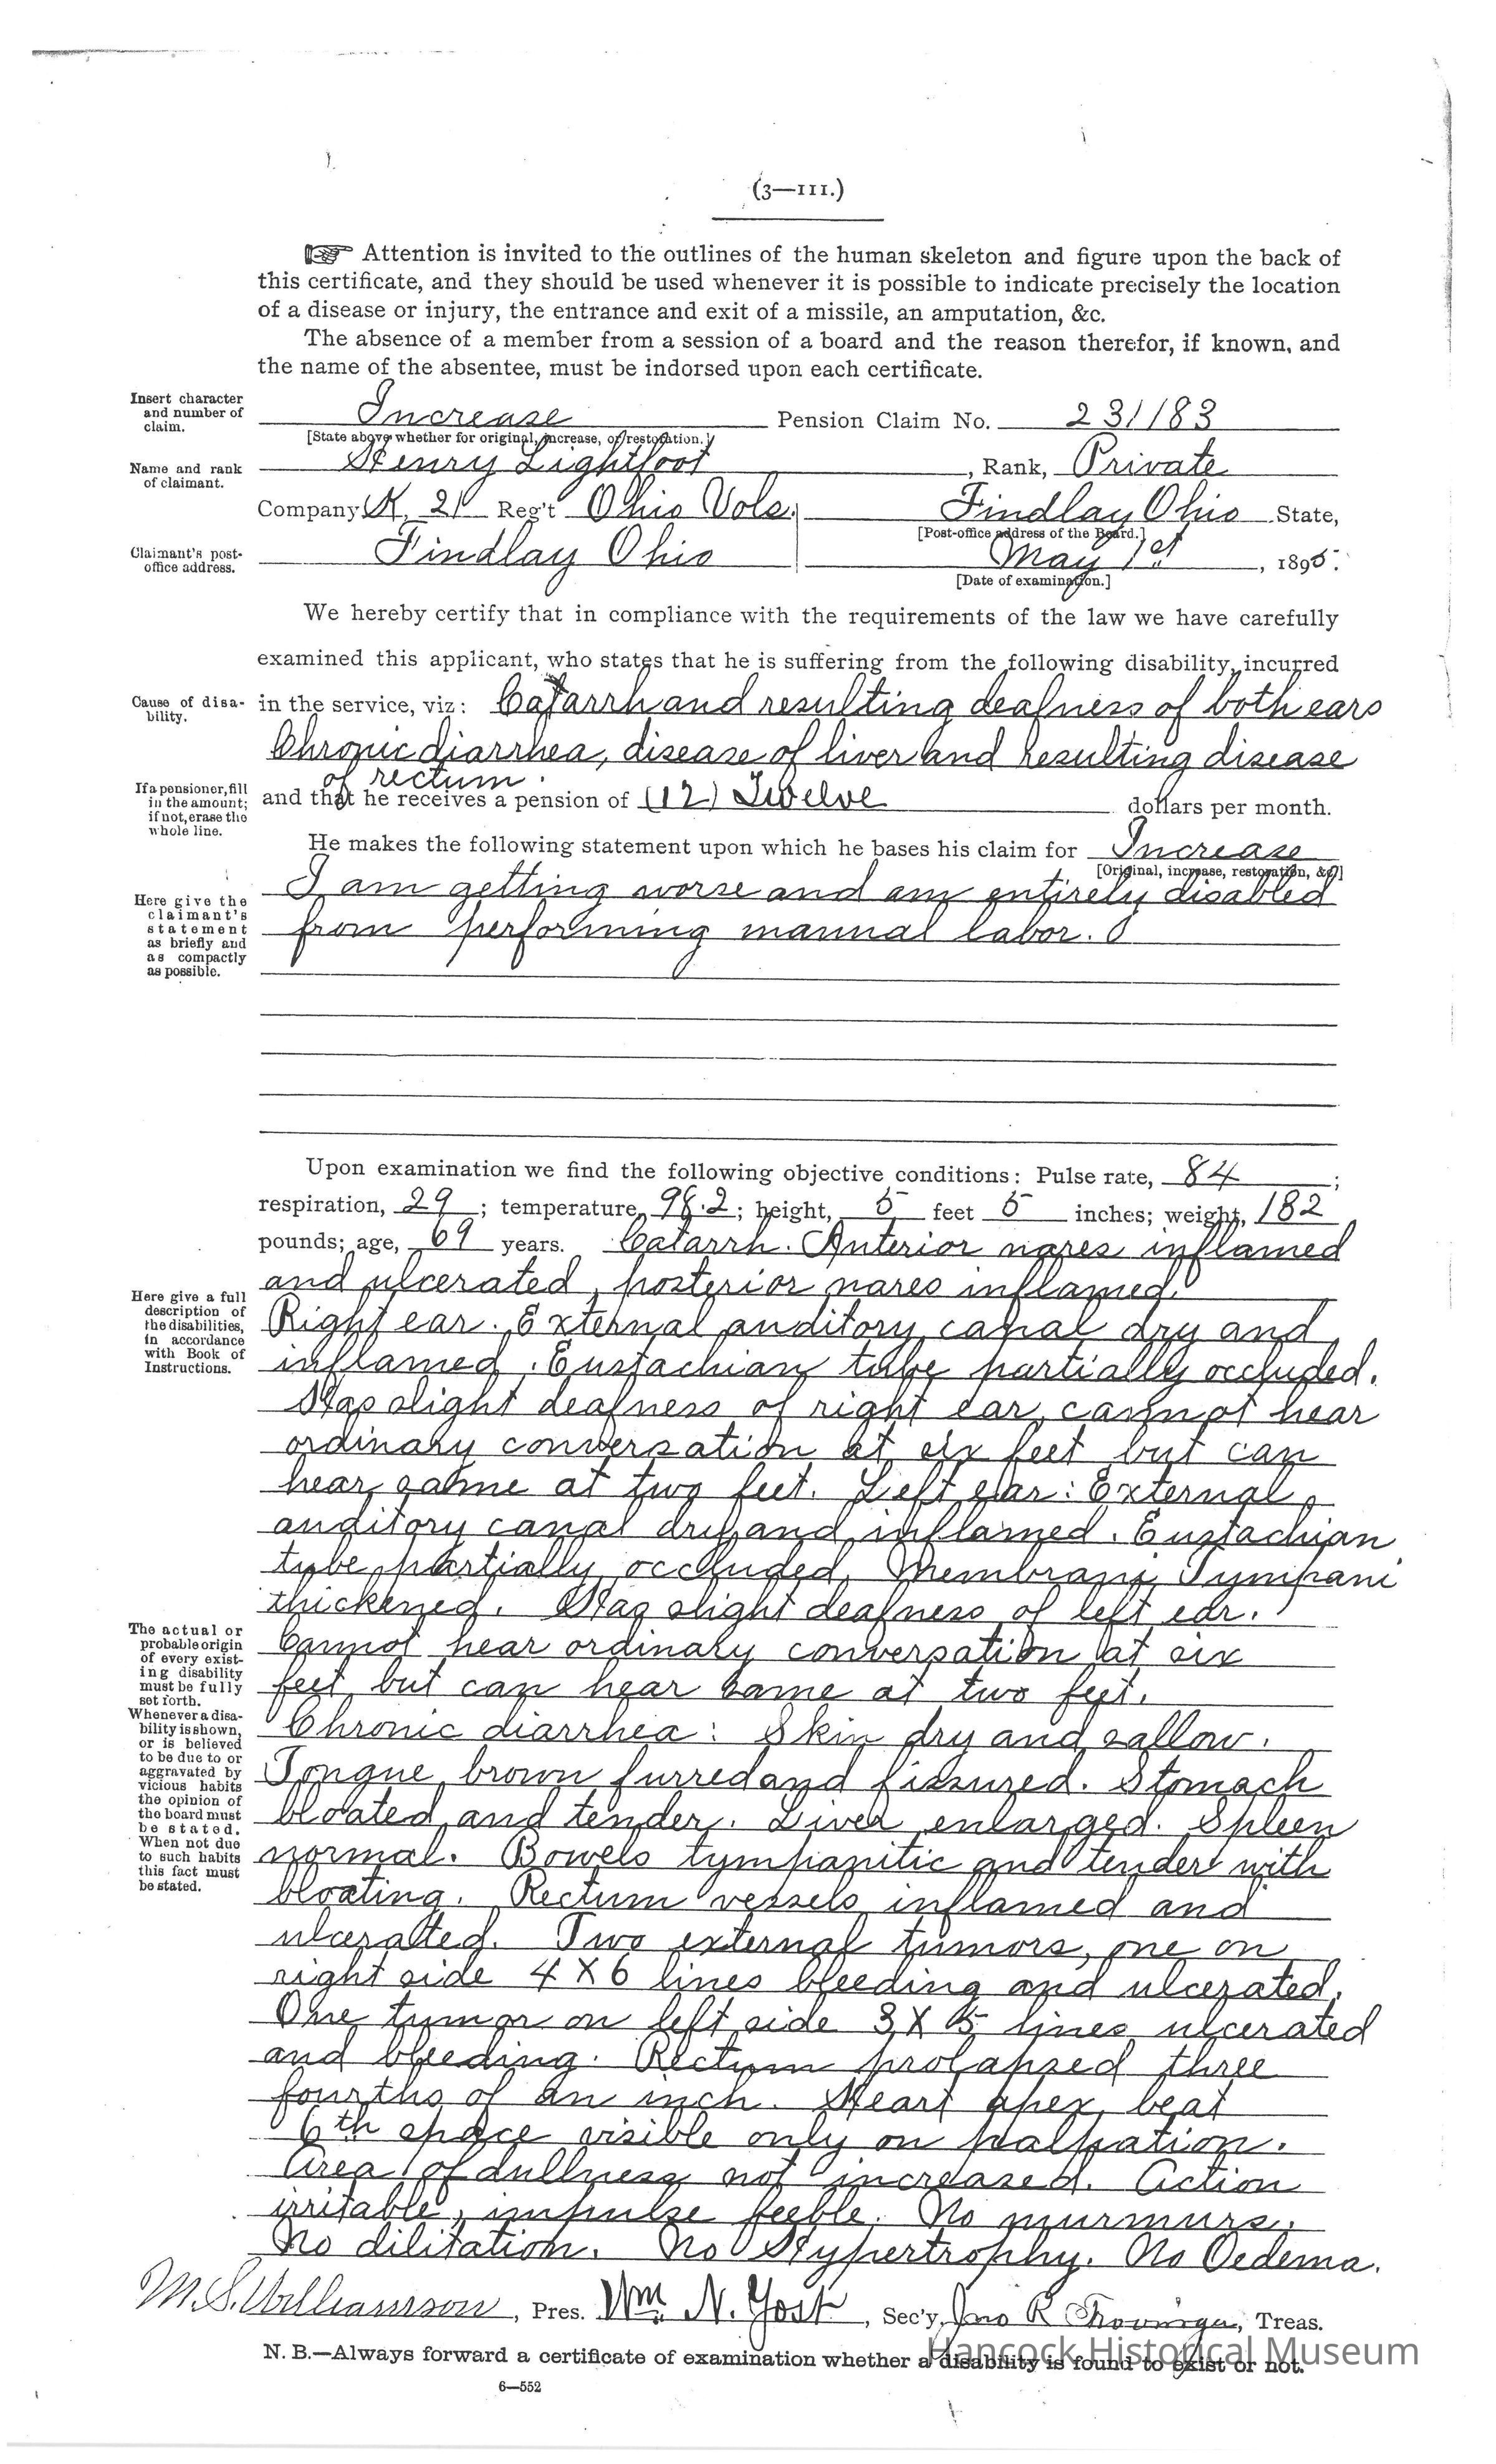 (3—III.)
☞ Attention is invited to the outlines of the human skeleton and figure upon the back of
this certificate, and they should be used whenever it is possible to indicate precisely the location
of a disease or injury, the entrance and exit of a missile, an amputation, &c.
The absence of a member from a session of a board and the reason therefor, if known, and
the name of the absentee, must be indorsed upon each certificate.
Insert character
and number of
claim.
Increase Pension Claim No. 231183
[State above whether for original, increase, or restoration.]
Name and rank
of claimant.
Henry Lightfoot, Rank, Private
Company K, 21 Reg't Ohio Vols. Findlay Ohio State,
[Post-office address of the Board.]
Claimant's post-
office address.
Findlay Ohio May 1st, 1895.
[Date of examination.]
We hereby certify that in compliance with the requirements of the law we have carefully
examined this applicant, who states that he is suffering from the following disability, incurred
Cause of disa-
bility.
in the service, viz: Catarrh and resulting deafness of both ears
Chronic diarrhea, disease of liver and resulting disease
of rectum.
If a pensioner, fill
in the amount;
if not, erase the
whole line.
and that he receives a pension of (12) Twelve dollars per month.
He makes the following statement upon which he bases his claim for Increase
[Original, increase, restoration, &c.]
Here give the
claimant's
statement
as briefly and
as compactly
as possible.
I am getting worse and am entirely disabled
from performing manual labor.
Upon examination we find the following objective conditions: Pulse rate, 84;
respiration, 29; temperature, 98.2; height, 5 feet 5 inches; weight, 182
pounds; age, 69 years. Catarrh. Anterior nares inflamed
and ulcerated, posterior nares inflamed.
Here give a full
description of
the disabilities,
in accordance
with Book of
Instructions.
Right ear. External auditory canal dry and
inflamed. Eustachian tube partially occluded.
Has slight deafness of right ear, cannot hear
ordinary conversation at six feet but can
hear same at two feet. Left ear: External
auditory canal dry and inflamed. Eustachian
tube partially occluded, Membrani Tympani
thickened. Has slight deafness of left ear.
The actual or
probable origin
of every exist-
ing disability
must be fully
set forth.
Whenever a disa-
bility is shown,
or is believed
to be due to or
aggravated by
vicious habits
the opinion of
the board must
be stated.
When not due
to such habits
this fact must
be stated.
Cannot hear ordinary conversation at six
feet but can hear same at two feet.
Chronic diarrhea: Skin dry and sallow.
Tongue brown furred and fissured. Stomach
bloated and tender. Liver enlarged. Spleen
normal. Bowels tympanitic and tender with
bloating. Rectum vessels inflamed and
ulceratted. Two external tumors, one on
right side 4 X 6 lines bleeding and ulcerated.
One tumor on left side 3 X 5 lines ulcerated
and bleeding. Rectum prolapsed three
fourths of an inch. Heart apex beat
6th space visible only on palpation.
Area of dullness not increased. Action
irritable, impulse feeble. No murmurs.
No dilitation. No Hypertrophy. No Oedema.
M. S. Williamson, Pres. Wm. N. Yost, Sec'y, Jno R, Treas.
N. B.—Always forward a certificate of examination whether a disability is found to exist or not.
Hancock Historical Museum
6—552